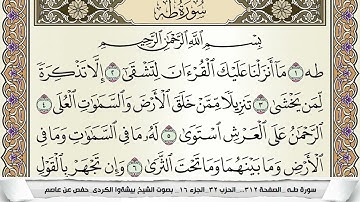 سورة طه
بسم الله الرحمن الرحيم
طه ١ مَا أَنزَلْنَا عَلَيْكَ الْقُرْءَانَ لِتَشْقَىٰ ٢ إِلَّا تَذْكِرَةً
لِّمَن يَخْشَىٰ ٣ تَنزِيلًا مِّمَّنْ خَلَقَ الْأَرْضَ وَالسَّمَٰوَٰتِ الْعُلَى ٤
الرَّحْمَٰنُ عَلَى الْعَرْشِ اسْتَوَىٰ ٥ لَهُ مَا فِي السَّمَٰوَٰتِ وَمَا فِي
الْأَرْضِ وَمَا بَيْنَهُمَا وَمَا تَحْتَ الثَّرَىٰ ٦ وَإِن تَجْهَرْ بِالْقَوْلِ
سورة طـه _الصفحة ٣١٢_ الحزب ٣٢_ الجزء ١٦_ بصوت الشيخ بيشةوا الكردي_ حفص عن عاصم